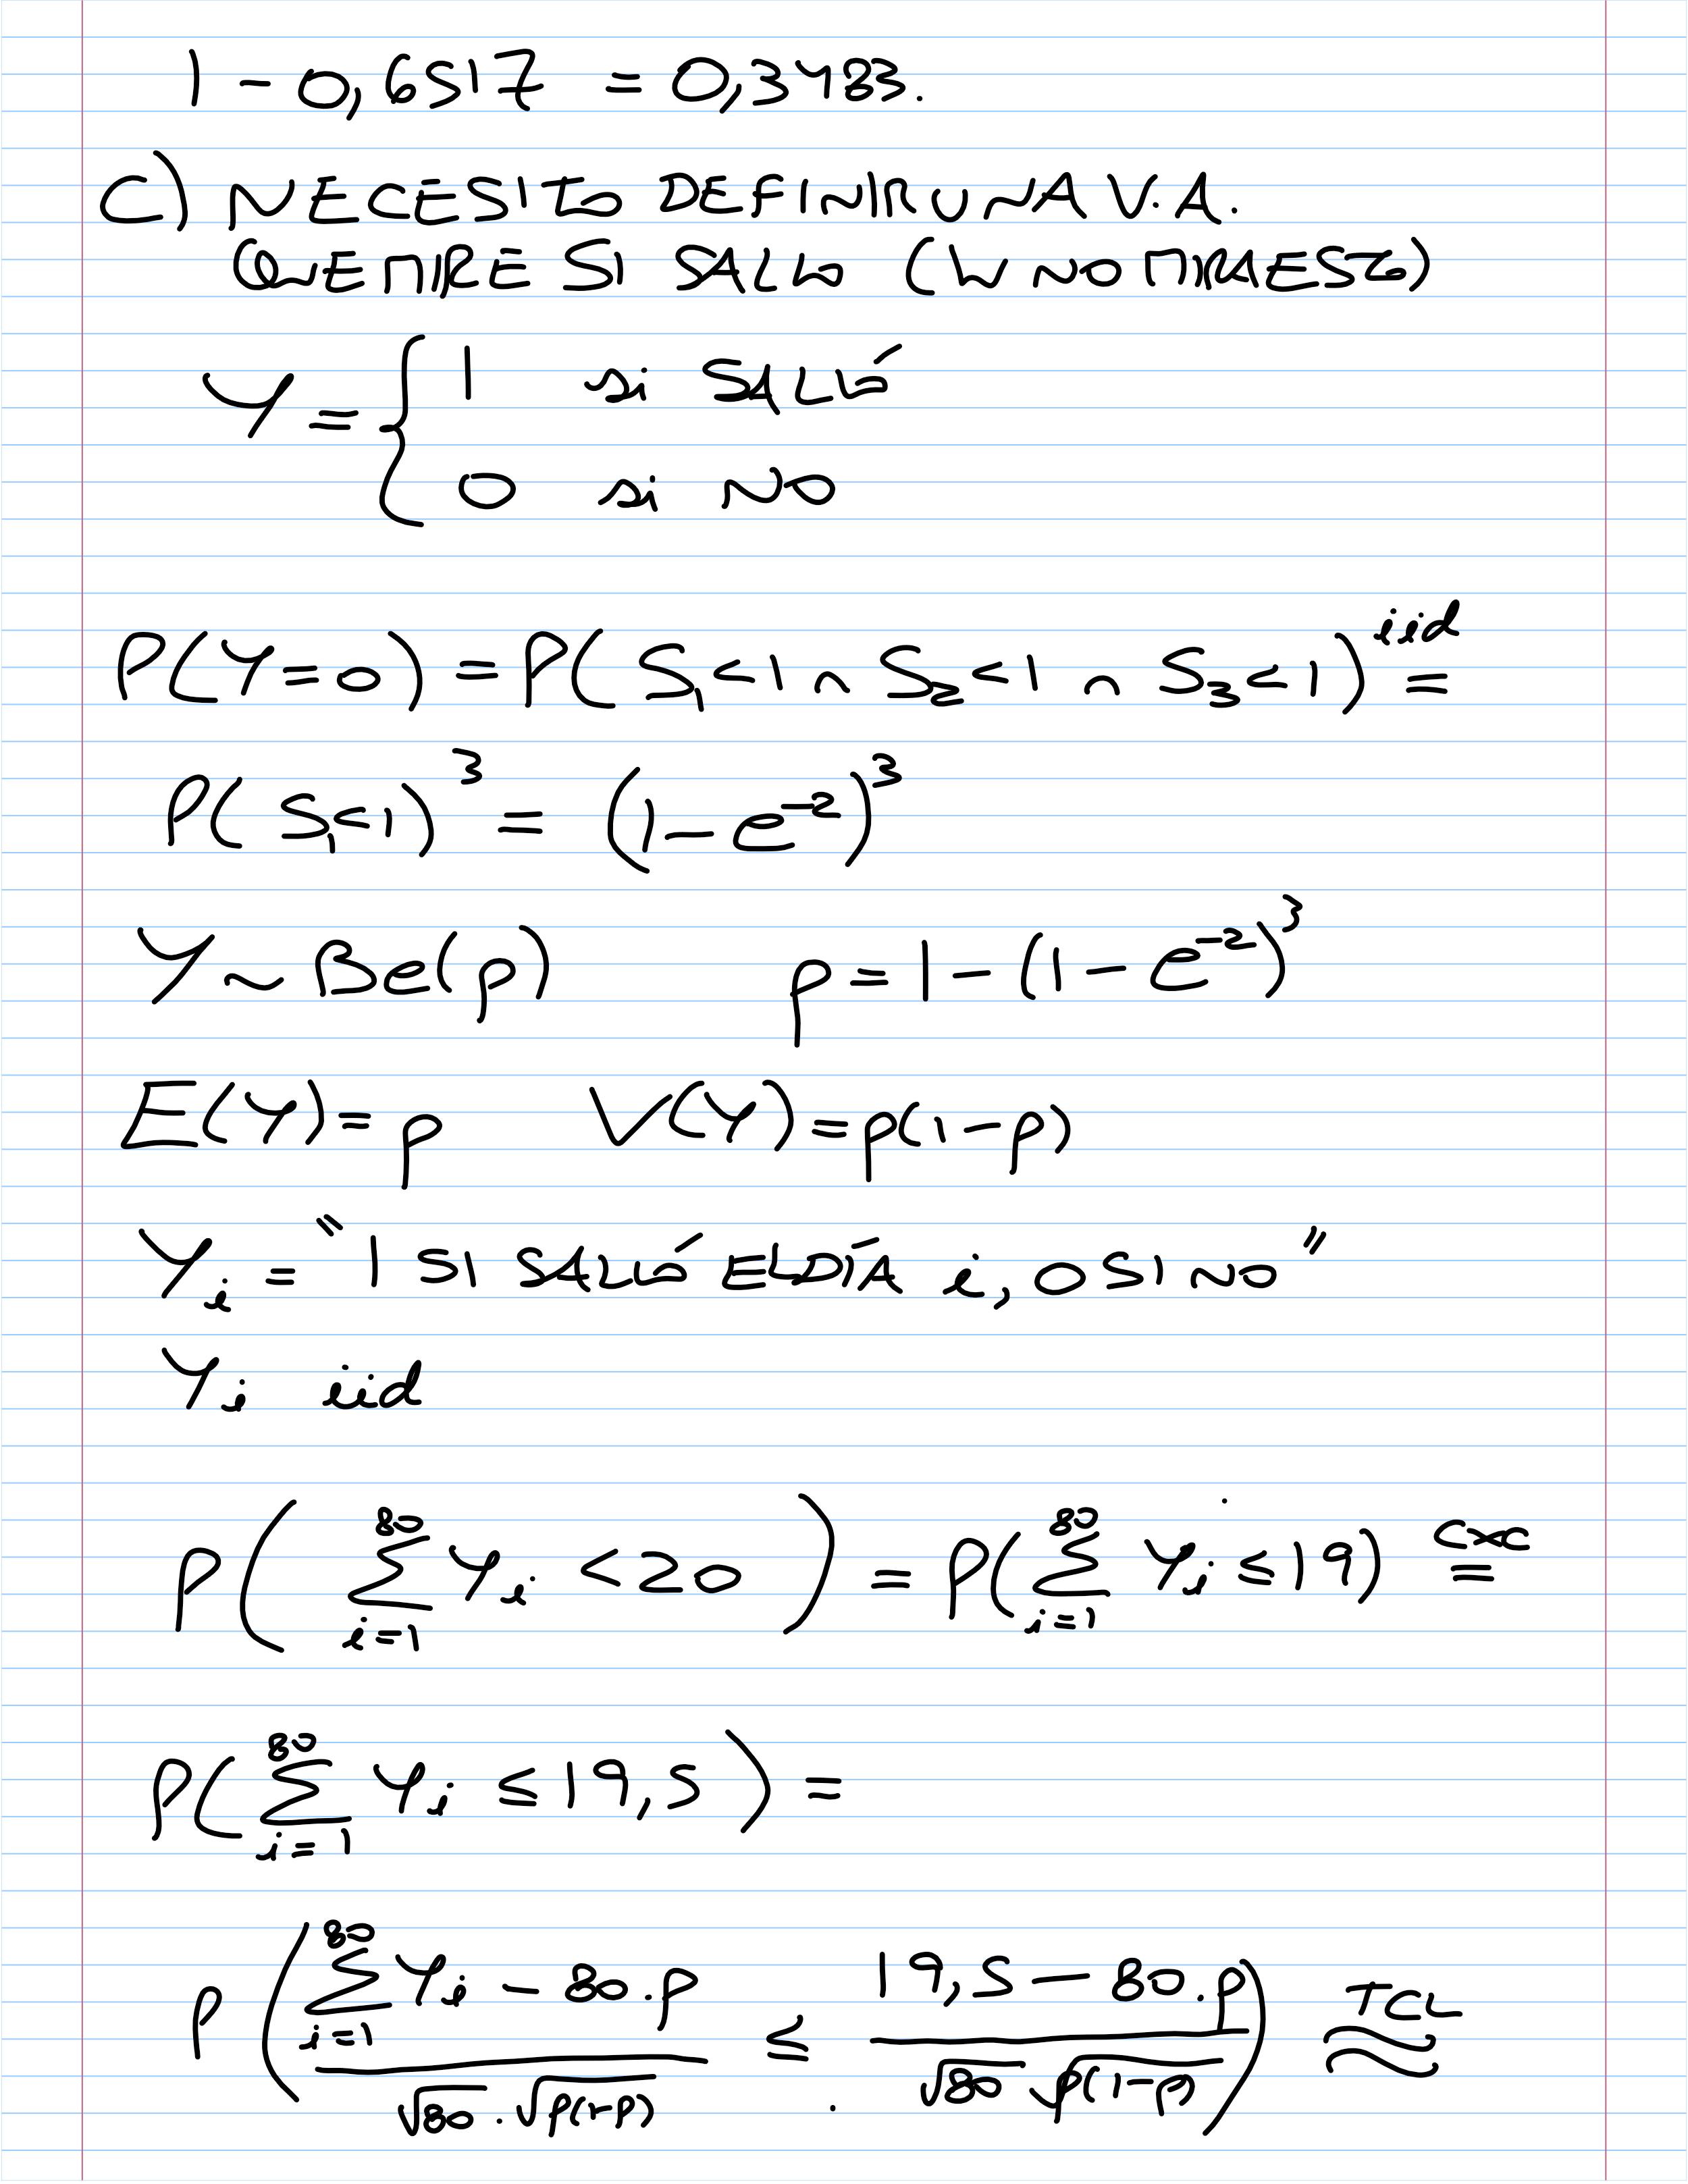 1 - 0,6517 = 0,3483.
C) NECESITO DEFINIR UNA V.A.
QUE MIRE SI SALIÓ (W NO MIRA ESTO)
Y = { 1 si SALIÓ
0 si NO
P(Y=0) = P(S₁<1 ∩ S₂<1 ∩ S₃<1) iid =
P(S₁<1)³ = (1-e⁻²)³
Y ~ Be(p) p = 1-(1-e⁻²)³
E(Y)=p V(Y)=p(1-p)
Yᵢ = "1 SI SALIÓ EL DÍA i, 0 SI NO"
Yᵢ iid
P(∑_{i=1}^{80} Yᵢ < 20) = P(∑_{i=1}^{80} Yᵢ ≤ 19) CxC =
P(∑_{i=1}^{80} Yᵢ ≤ 19,5) =
P((∑_{i=1}^{80} Yᵢ - 80.p)/(√80 . √p(1-p)) ≤ (19,5 - 80.p)/(√80 √p(1-p))) TCL ≈